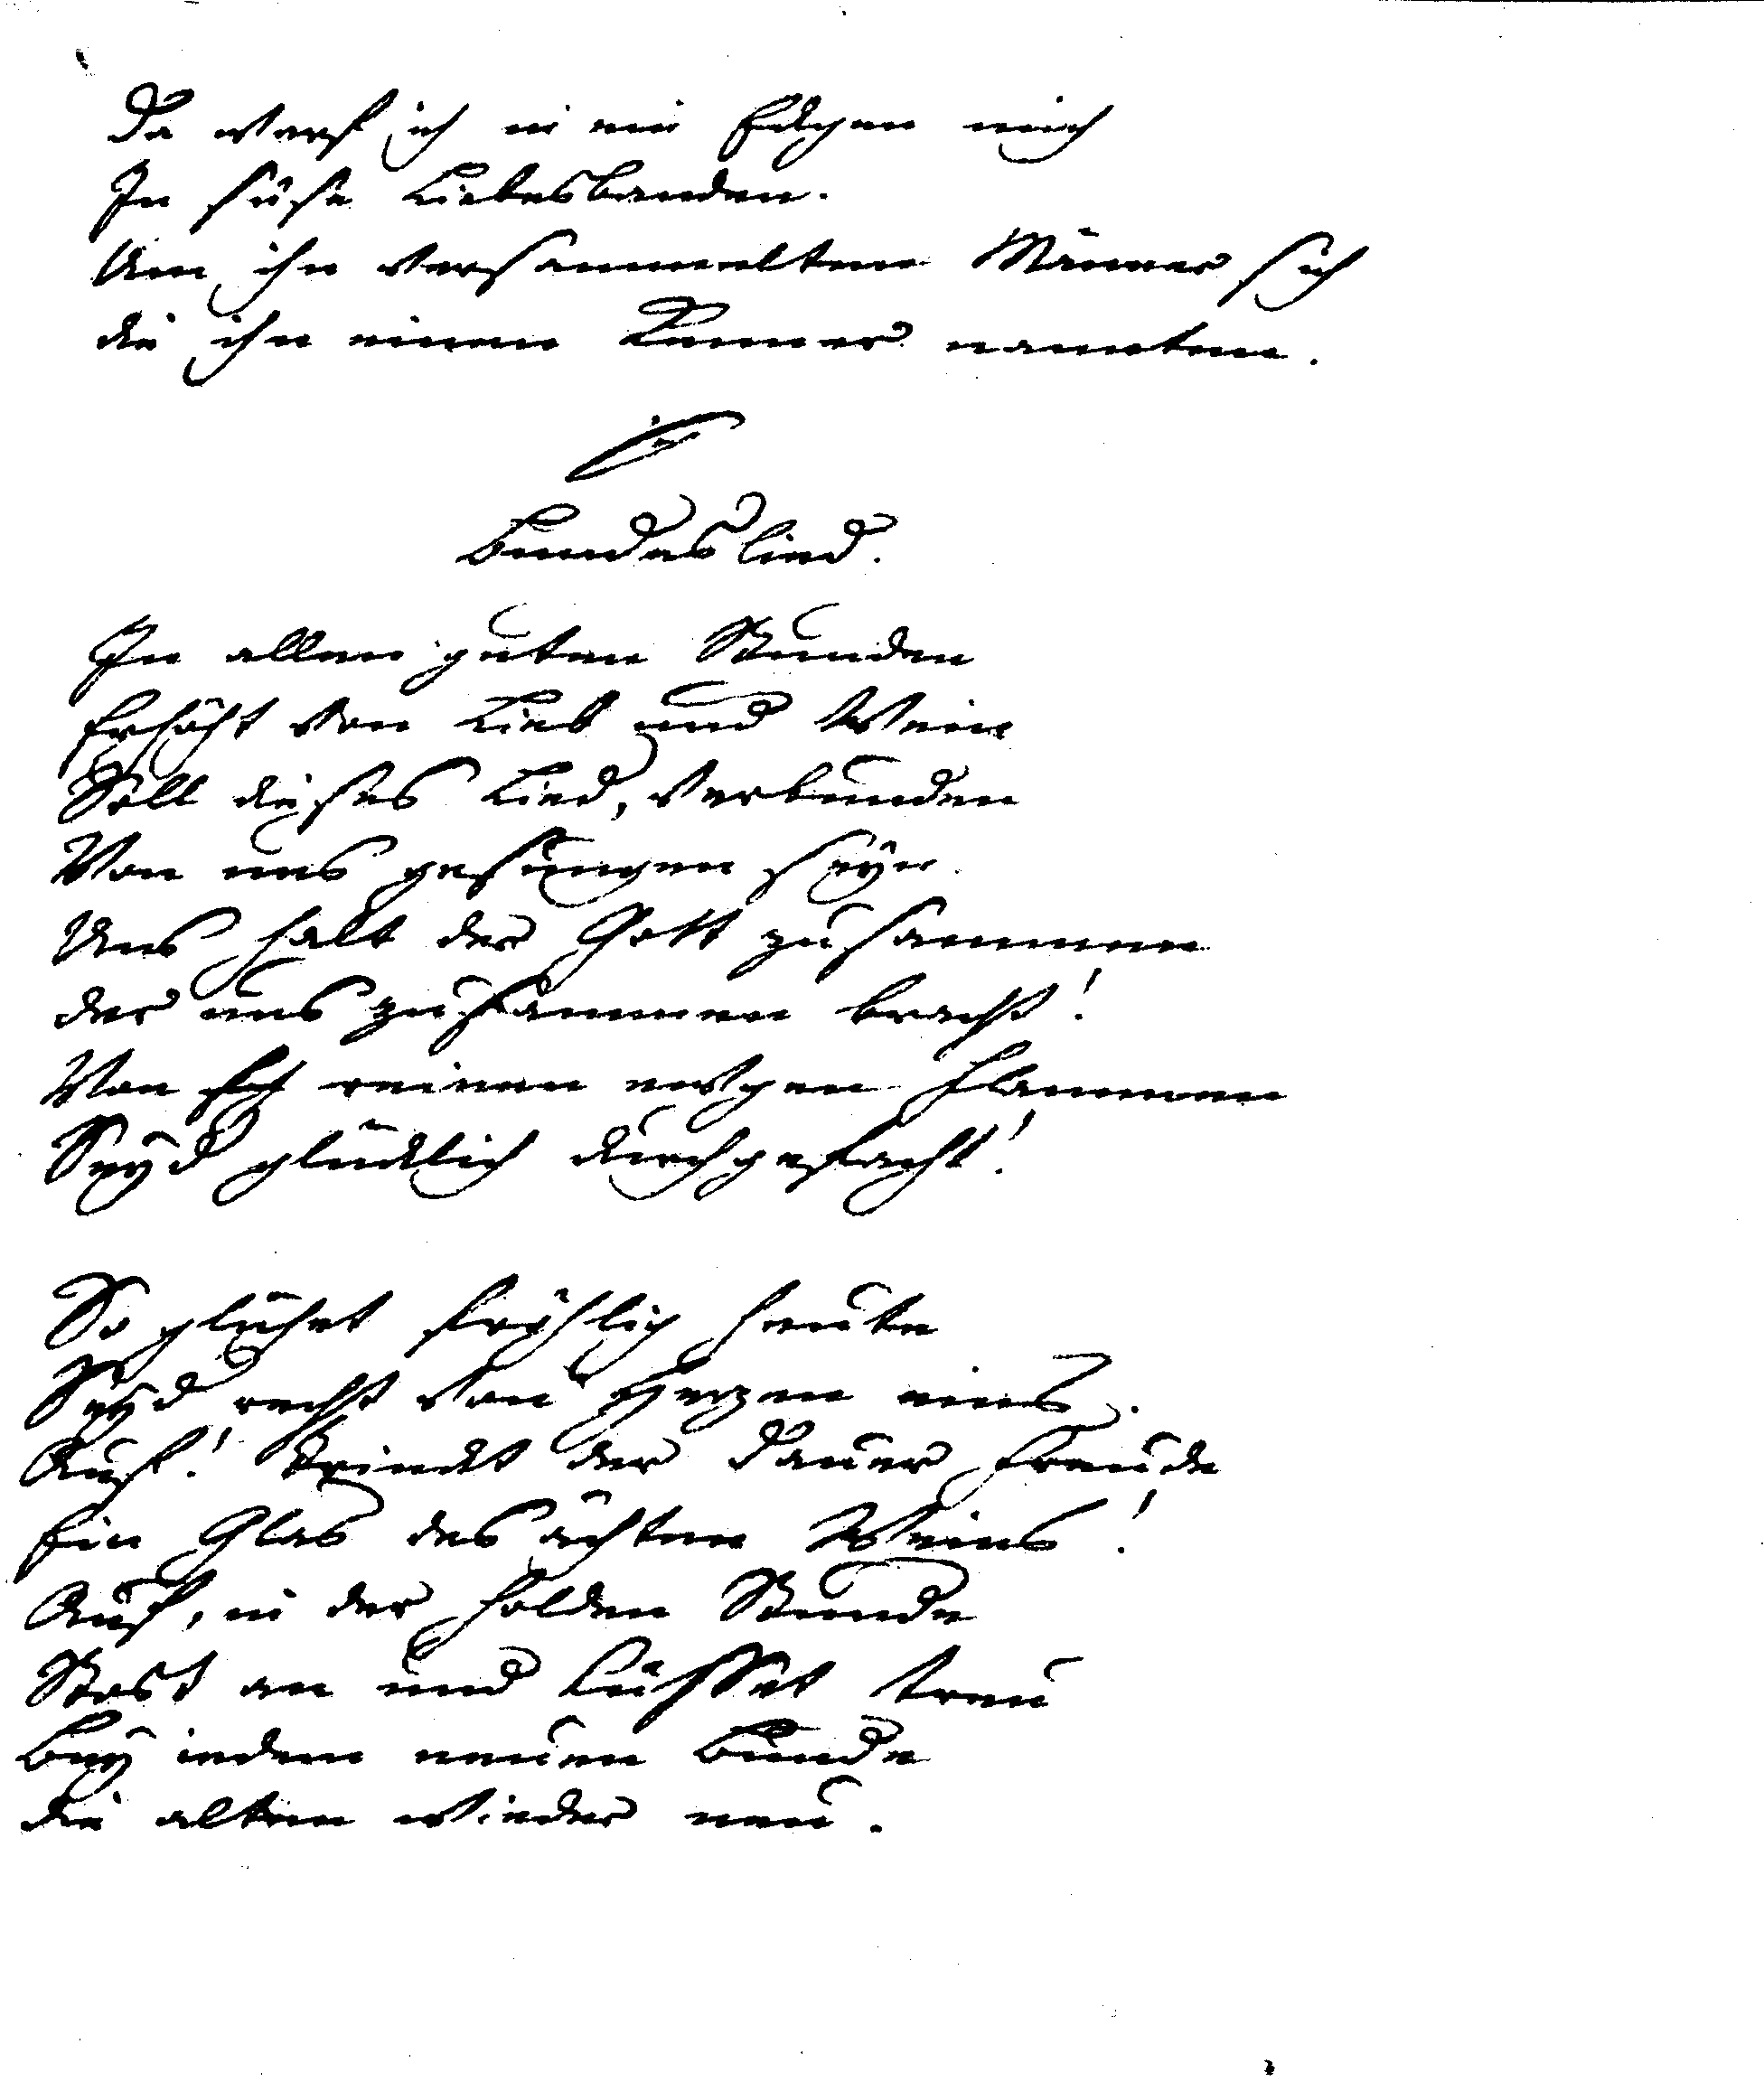 Da warf ich in ein Eckgen mich
In süse Liebesbanden.
Um ihn versammelten Männer sich
die ihn einen Kenner nannten.
Bundeslied.
In allen guten Stunden
Erhöht von Lieb und Wein
Soll dieses Lied, verbunden
Von uns gesungen seyn.
Uns halt der Gott zusammen
der uns zusammen bracht!
Von reinen ewgen Flammen
Seyd glücklich durchgefacht!
So glühet fröhlich heute
Seyd recht von Herzen eins.
Auf! trinckt der Dauer Freude
Ein Glas des ächten Weins!
Auf, in der holden Stunde
Stost an und küsset treu
Bey iedem neuen Bunde
die alten wieder neu.